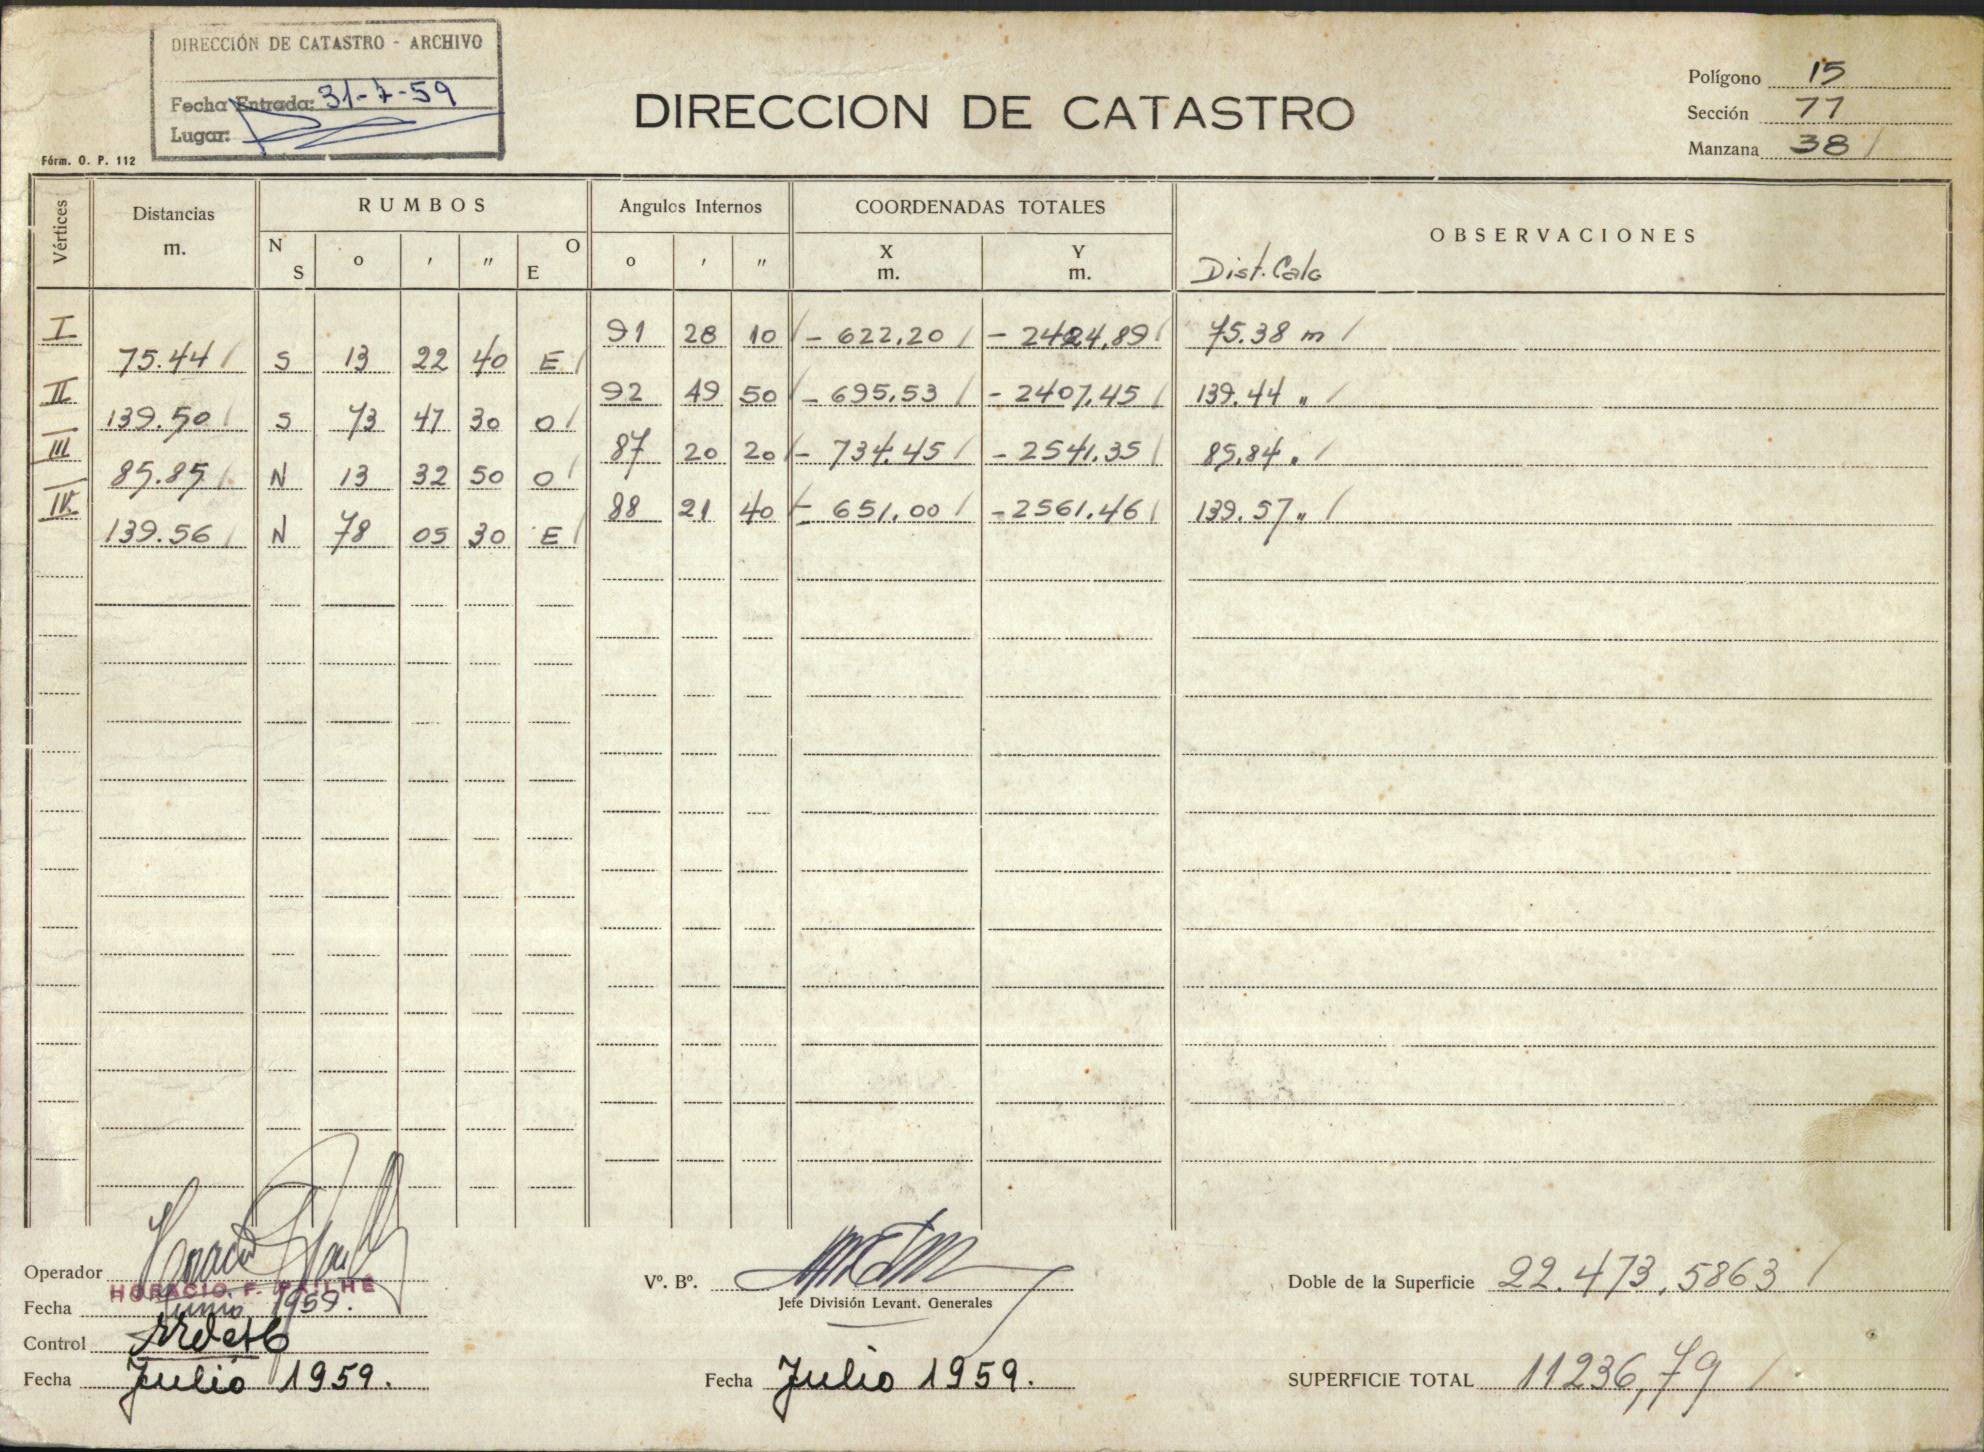 DIRECCIÓN DE CATASTRO - ARCHIVO
Fecha Entrada: 31-7-59
Lugar:
Fórm. O. P. 112
DIRECCION DE CATASTRO
Polígono 15
Sección 77
Manzana 38 /
Vértices Distancias m. RUMBOS Angulos Internos COORDENADAS TOTALES OBSERVACIONES
N S o ' " O E o ' " X m. Y m. Dist. Calc
I 91 28 10 / - 622,20 / - 2424,89 / 75.38 m /
75.44 / S 13 22 40 E /
II 92 49 50 / - 695,53 / - 2407,45 / 139.44 " /
139.50 / S 73 47 30 O /
III 87 20 20 / - 734.45 / - 2541.35 / 85,84 " /
85.85 / N 13 32 50 O /
IV 88 21 40 / - 651,00 / - 2561.46 / 139.57 " /
139.56 / N 78 05 30 E /
Operador
HORACIO F. PAILHE
Fecha Junio 1959.
Control
Fecha Julio 1959.
Vº. Bº.
Jefe División Levant. Generales
Fecha Julio 1959.
Doble de la Superficie 22.473,5863 /
SUPERFICIE TOTAL 11236,79 /